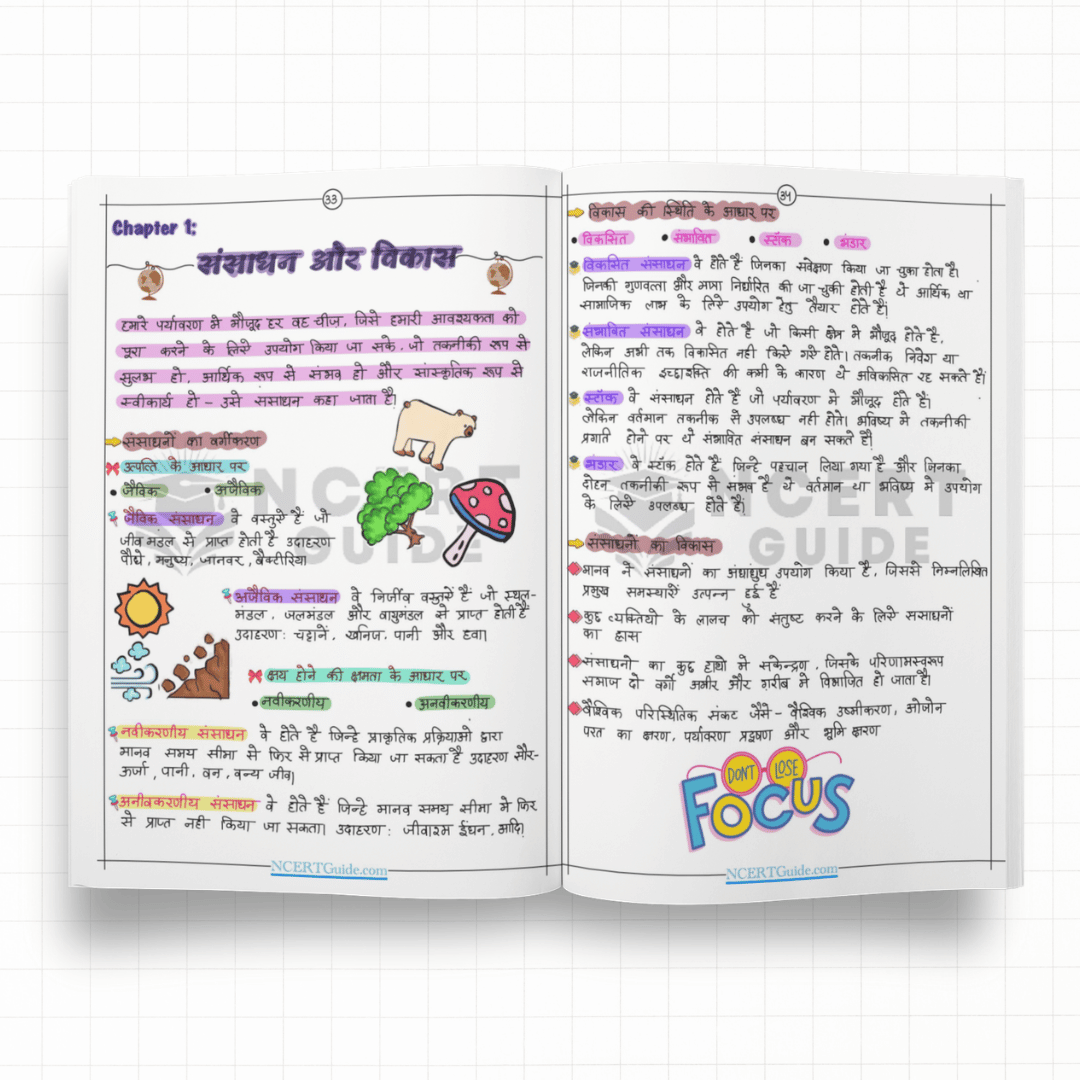 33
Chapter 1:
संसाधन और विकास
हमारे पर्यावरण मे मौजूद हर वह चीज, जिसे हमारी आवश्यकता को
पूरा करने के लिये उपयोग किया जा सके. जो तकनीकी रूप से
सुलभ हो, आर्थिक रूप से संभव हो और सांस्कृतिक रूप से
स्वीकार्य हो - उसे संसाधन कहा जाता है।
संसाधनों का वर्गीकरण
उत्पत्ति के आधार पर
• जैविक • अजैविक
जैविक संसाधन वे वस्तुएे है जो
जीव मंडल से प्राप्त होती है उदाहरण
पौधे, मनुष्य, जानवर, बैक्टीरिया
अजैविक संसाधन वे निर्जीव वस्तुऐं है जो स्थल-
मंडल, जलमंडल और वायुमंडल से प्राप्त होती है
उदाहरण: चट्टानें, खनिज, पानी और हवा।
क्षय होने की क्षमता के आधार पर
• नवीकरणीय • अनवीकरणीय
नवीकरणीय संसाधन वे होते है जिन्हे प्राकृतिक प्रक्रियाओ द्वारा
मानव समय सीमा से फिर से प्राप्त किया जा सकता है उदाहरण सौर-
ऊर्जा, पानी, वन, वन्य जीव।
अनीवकरणीय संसाधन वे होते है जिन्हे मानव समय सीमा मे फिर
से प्राप्त नही किया जा सकता। उदाहरण: जीवाश्म ईंधन, आदि।
NCERTGuide.com
34
विकास की स्थिति के आधार पर
• विकसित • संभावित • स्टॉक • भंडार
विकसित संसाधन वे होते है जिनका सर्वेक्षण किया जा चुका होता है।
जिनकी गुणवत्ता और मात्रा निर्धारित की जा चुकी होती है ये आर्थिक या
सामाजिक लाभ के लिऐ उपयोग हेतु तैयार होते है।
संभावित संसाधन वे होते है जो किसी क्षेत्र मे मौजूद होते है,
लेकिन अभी तक विकसित नही किऐ गऐ होते। तकनीक निवेश या
राजनीतिक इच्छाशक्ति की कमी के कारण ये अविकसित रह सकते है।
स्टॉक वे संसाधन होते है जो पर्यावरण मे मौजूद होते है।
लेकिन वर्तमान तकनीक से उपलब्ध नही होते। भविष्य मे तकनीकी
प्रगति होने पर ये संभावित संसाधन बन सकते है।
भंडार वे स्टाक होते है जिन्हे पहचान लिया गया है और जिनका
दोहन तकनीकी रूप से संभव है ये वर्तमान या भविष्य मे उपयोग
के लिऐ उपलब्ध होते है।
संसाधनों का विकास
मानव ने संसाधनों का अंधाधुंध उपयोग किया है, जिससे निम्नलिखित
प्रमुख समस्याऐं उत्पन्न हुई है
कुछ व्यक्तियो के लालच को संतुष्ट करने के लिऐ संसाधनों
का ह्रास
संसाधनो का कुछ हाथो मे सकेन्द्रण, जिसके परिणामस्वरूप
समाज दो वर्गो अमीर और गरीब मे विभाजित हो जाता है।
वैश्विक परिस्थितिक संकट जैसे- वैश्विक उष्मीकरण, ओजोन
परत का क्षरण, पर्यावरण प्रदूषण और भूमि क्षरण
DON'T LOSE
FOCUS
NCERTGuide.com
NCERT
GUIDE
NCERT
GUIDE